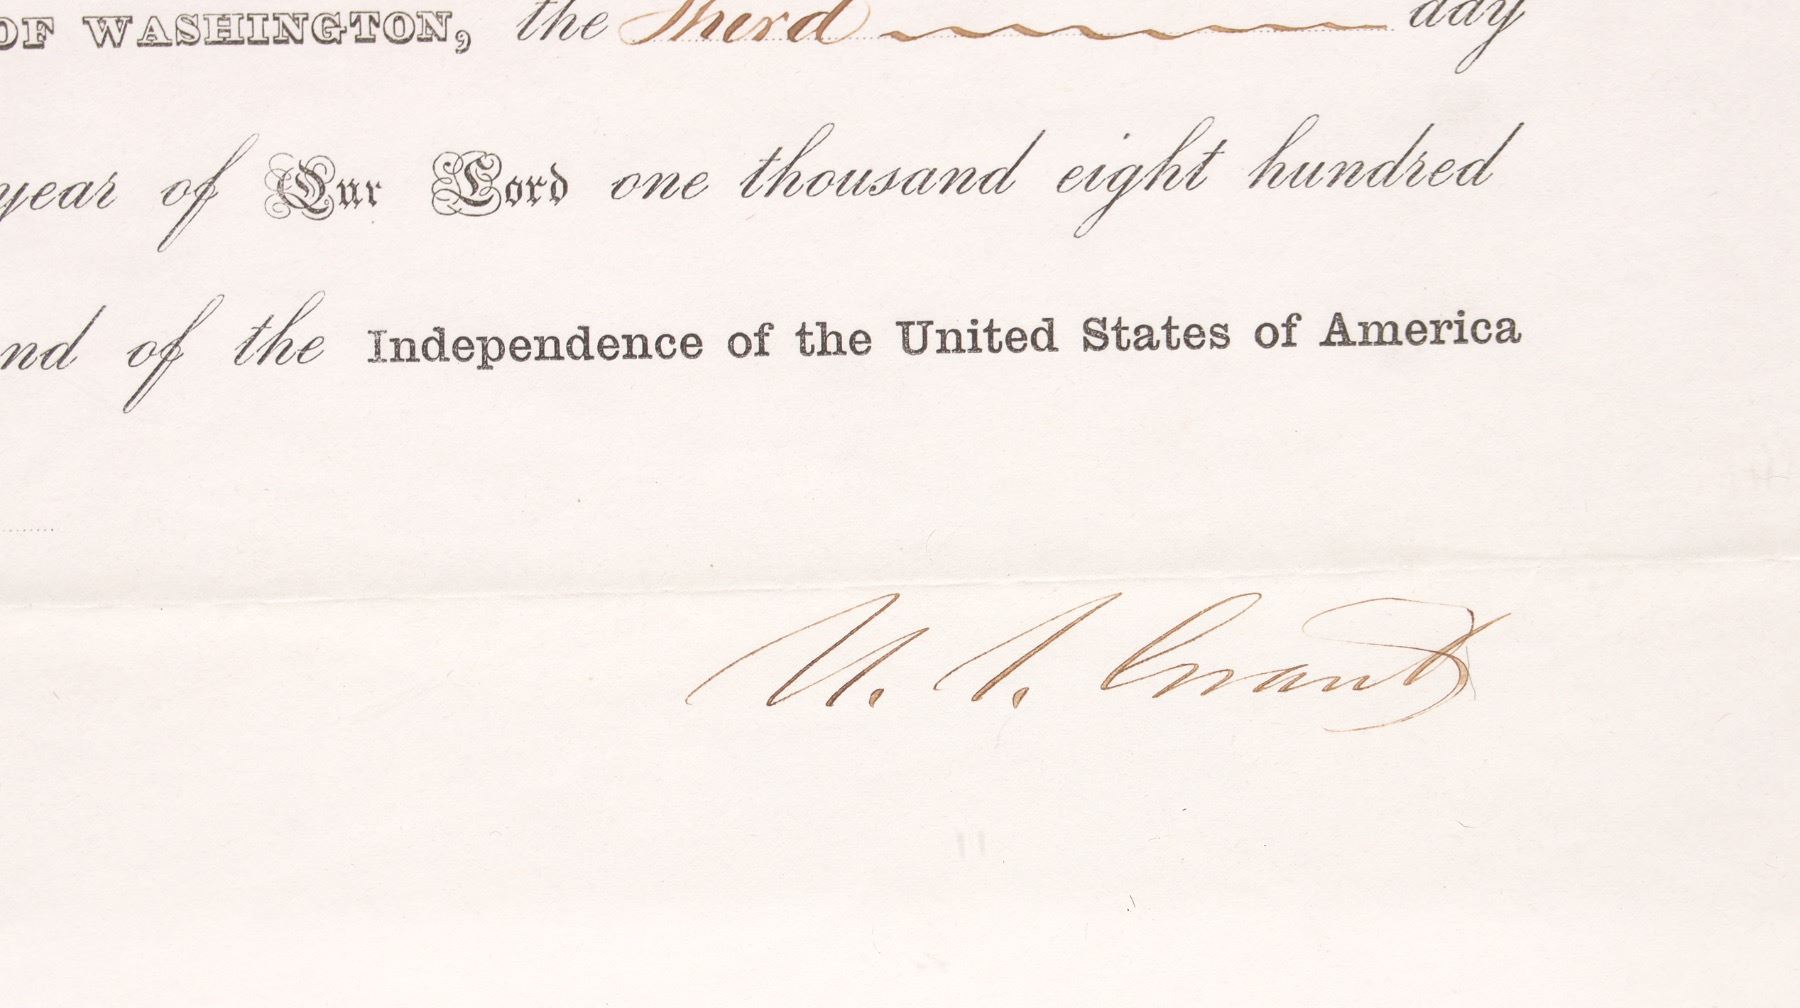 OF WASHINGTON, the Third day
year of Our Lord one thousand eight hundred
nd of the Independence of the United States of America
U. S. Grant